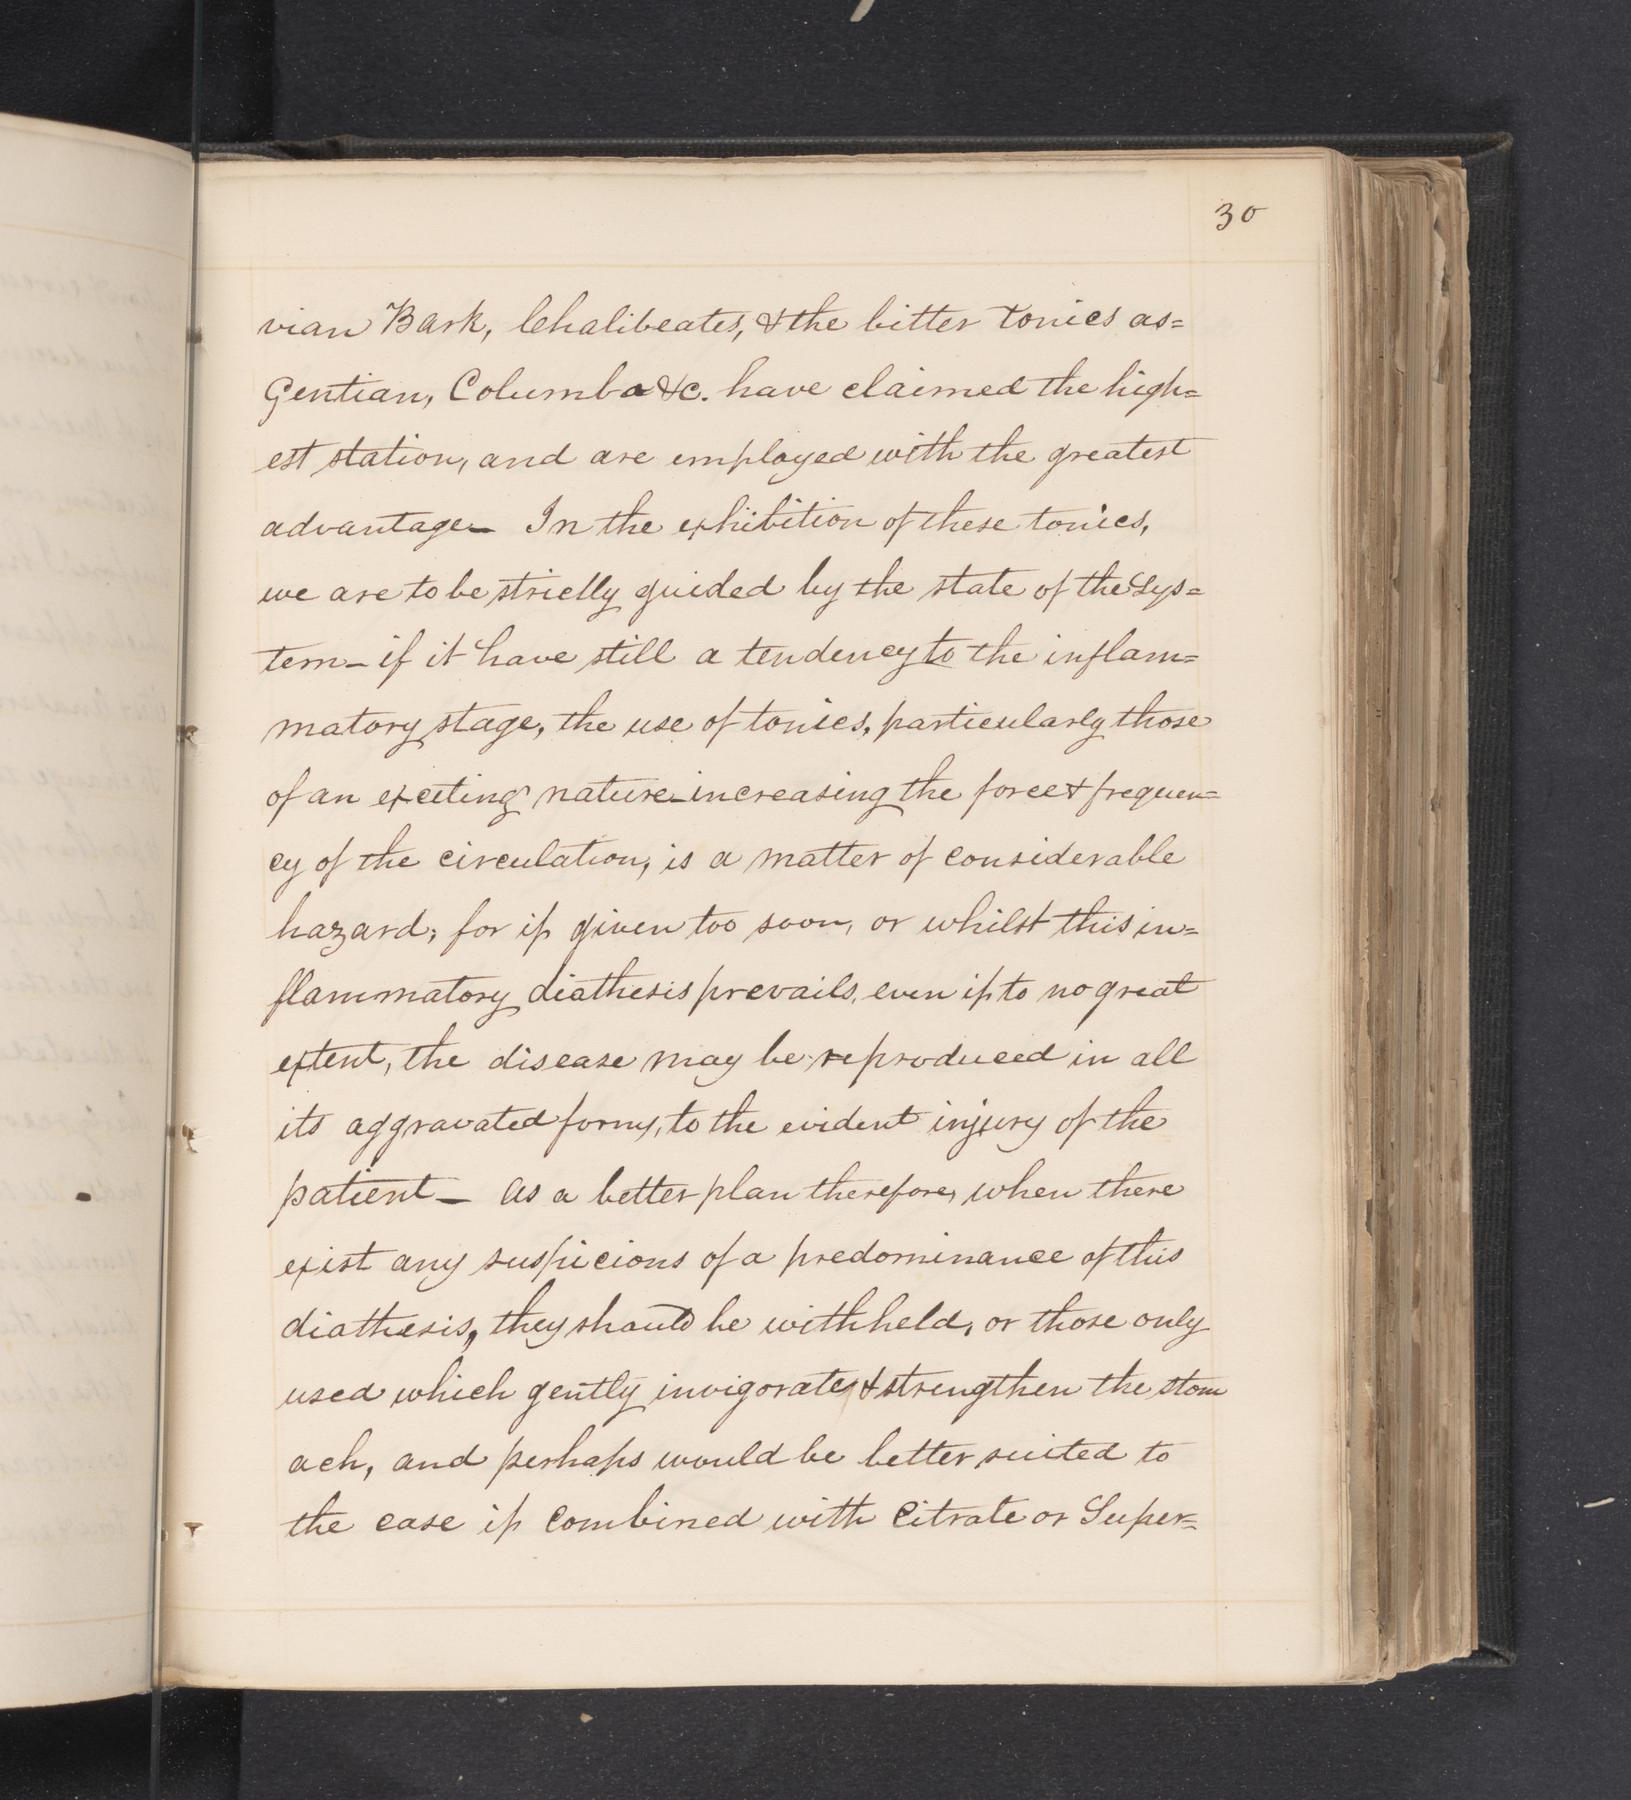 30
vian Bark, Chalibeates, & the bitter tonics as=
Gentian, Columba &c. have claimed the high=
est station, and are employed with the greatest
advantage— In the exhibition of these tonics,
we are to be strictly guided by the state of the Sys=
tem— if it have still a tendency to the inflam=
matory stage, the use of tonics, particularly those
of an exciting nature—increasing the force & frequen=
cy of the circulation, is a matter of considerable
hazard; for if given too soon, or whilst this in=
flammatory diathesis prevails, even if to no great
extent, the disease may be reproduced in all
its aggravated forms, to the evident injury of the
patient— As a better plan therefore, when there
exist any suspicions of a predominance of this
diathesis, they should be withheld, or those only
used which gently invigorate, & strengthen the stom
ach, and perhaps would be better suited to
the case if combined with Citrate or Super=